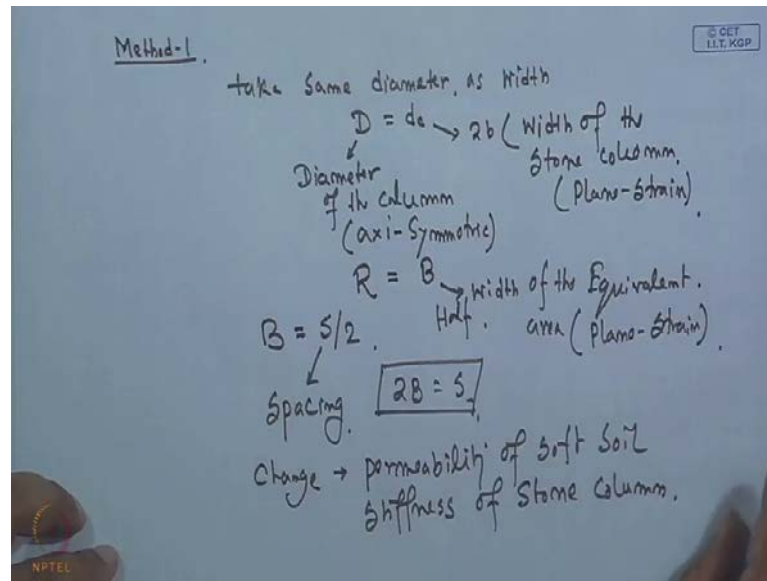 Method-1.
© CET
I.I.T. KGP
take same diameter, as width
D = dc → 2b (Width of the
Stone column.
(Plane-Strain).
Diameter
of the column
(axi-Symmetric)
R = B → width of the Equivalent.
Half. area (Plane-Strain).
B = S/2.
Spacing. 2B = S
Change → permeability of soft soil
stiffness of Stone column.
NPTEL